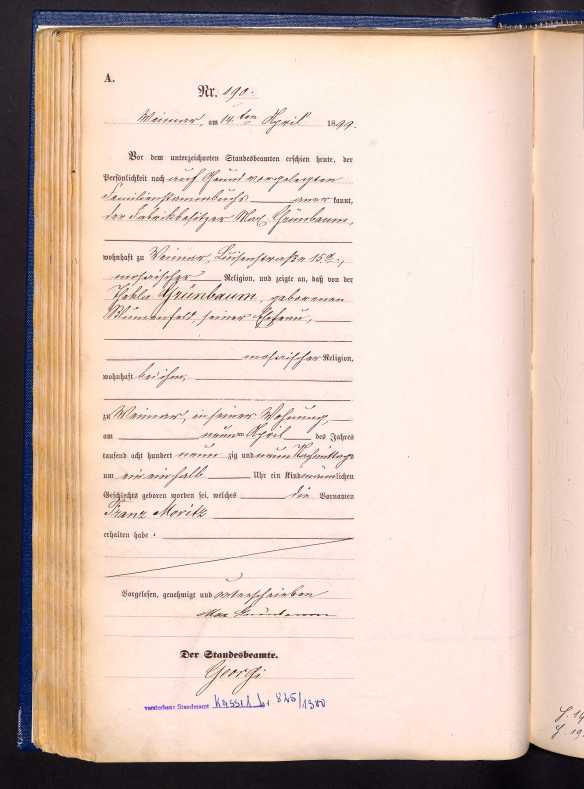 A.
Nr. 190.
Weimar, am 14. ten April 1899.
Vor dem unterzeichneten Standesbeamten erschien heute, der
Persönlichkeit nach auf Grund vorgelegten
Familienstammbuchs aner kannt,
der Fabrikbesitzer Max Grünbaum,
wohnhaft zu Weimar, Luisenstraße 15a,
mosaischer Religion, und zeigte an, daß von der
Thekla Grünbaum, geborenen
Blumenfeld, seiner Ehefrau,
mosaischer Religion,
wohnhaft bei ihm,
zu Weimar, in seiner Wohnung,
am neunten April des Jahres
tausend acht hundert neun zig und neun Nachmittags
um ein einhalb Uhr ein Kind männlichen
Geschlechts geboren worden sei, welches die Vornamen
Franz Moritz
erhalten habe.
Vorgelesen, genehmigt und unterschrieben
Max Grünbaum
Der Standesbeamte.
Georgi
Standesamt Kassel I, 825/1300